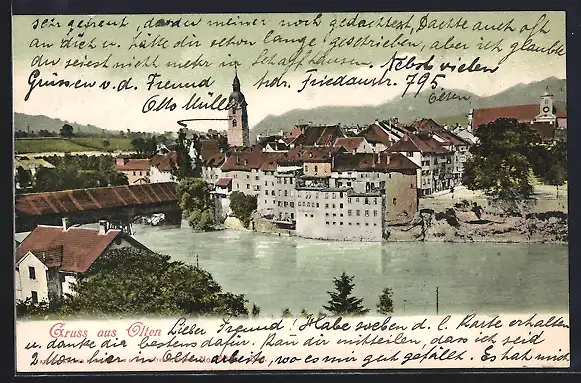 sehr gefreut, dass du meiner noch gedachtest. Dachte auch oft
an dich u. hätte dir schon lange geschrieben, aber ich glaubte
du seiest nicht mehr in Schaffhausen. Nebst vielen
Grüssen v. d. Freund Adr. Friedaustr. 795
Otto Müller Olten
Gruss aus Olten
Lieber Freund! Habe soeben d. l. Karte erhalten
u. danke dir bestens dafür. Kan dir mitteilen, dass ich seid
2 Mon. hier in Olten arbeite, wo es mir gut gefällt. Es hat mich